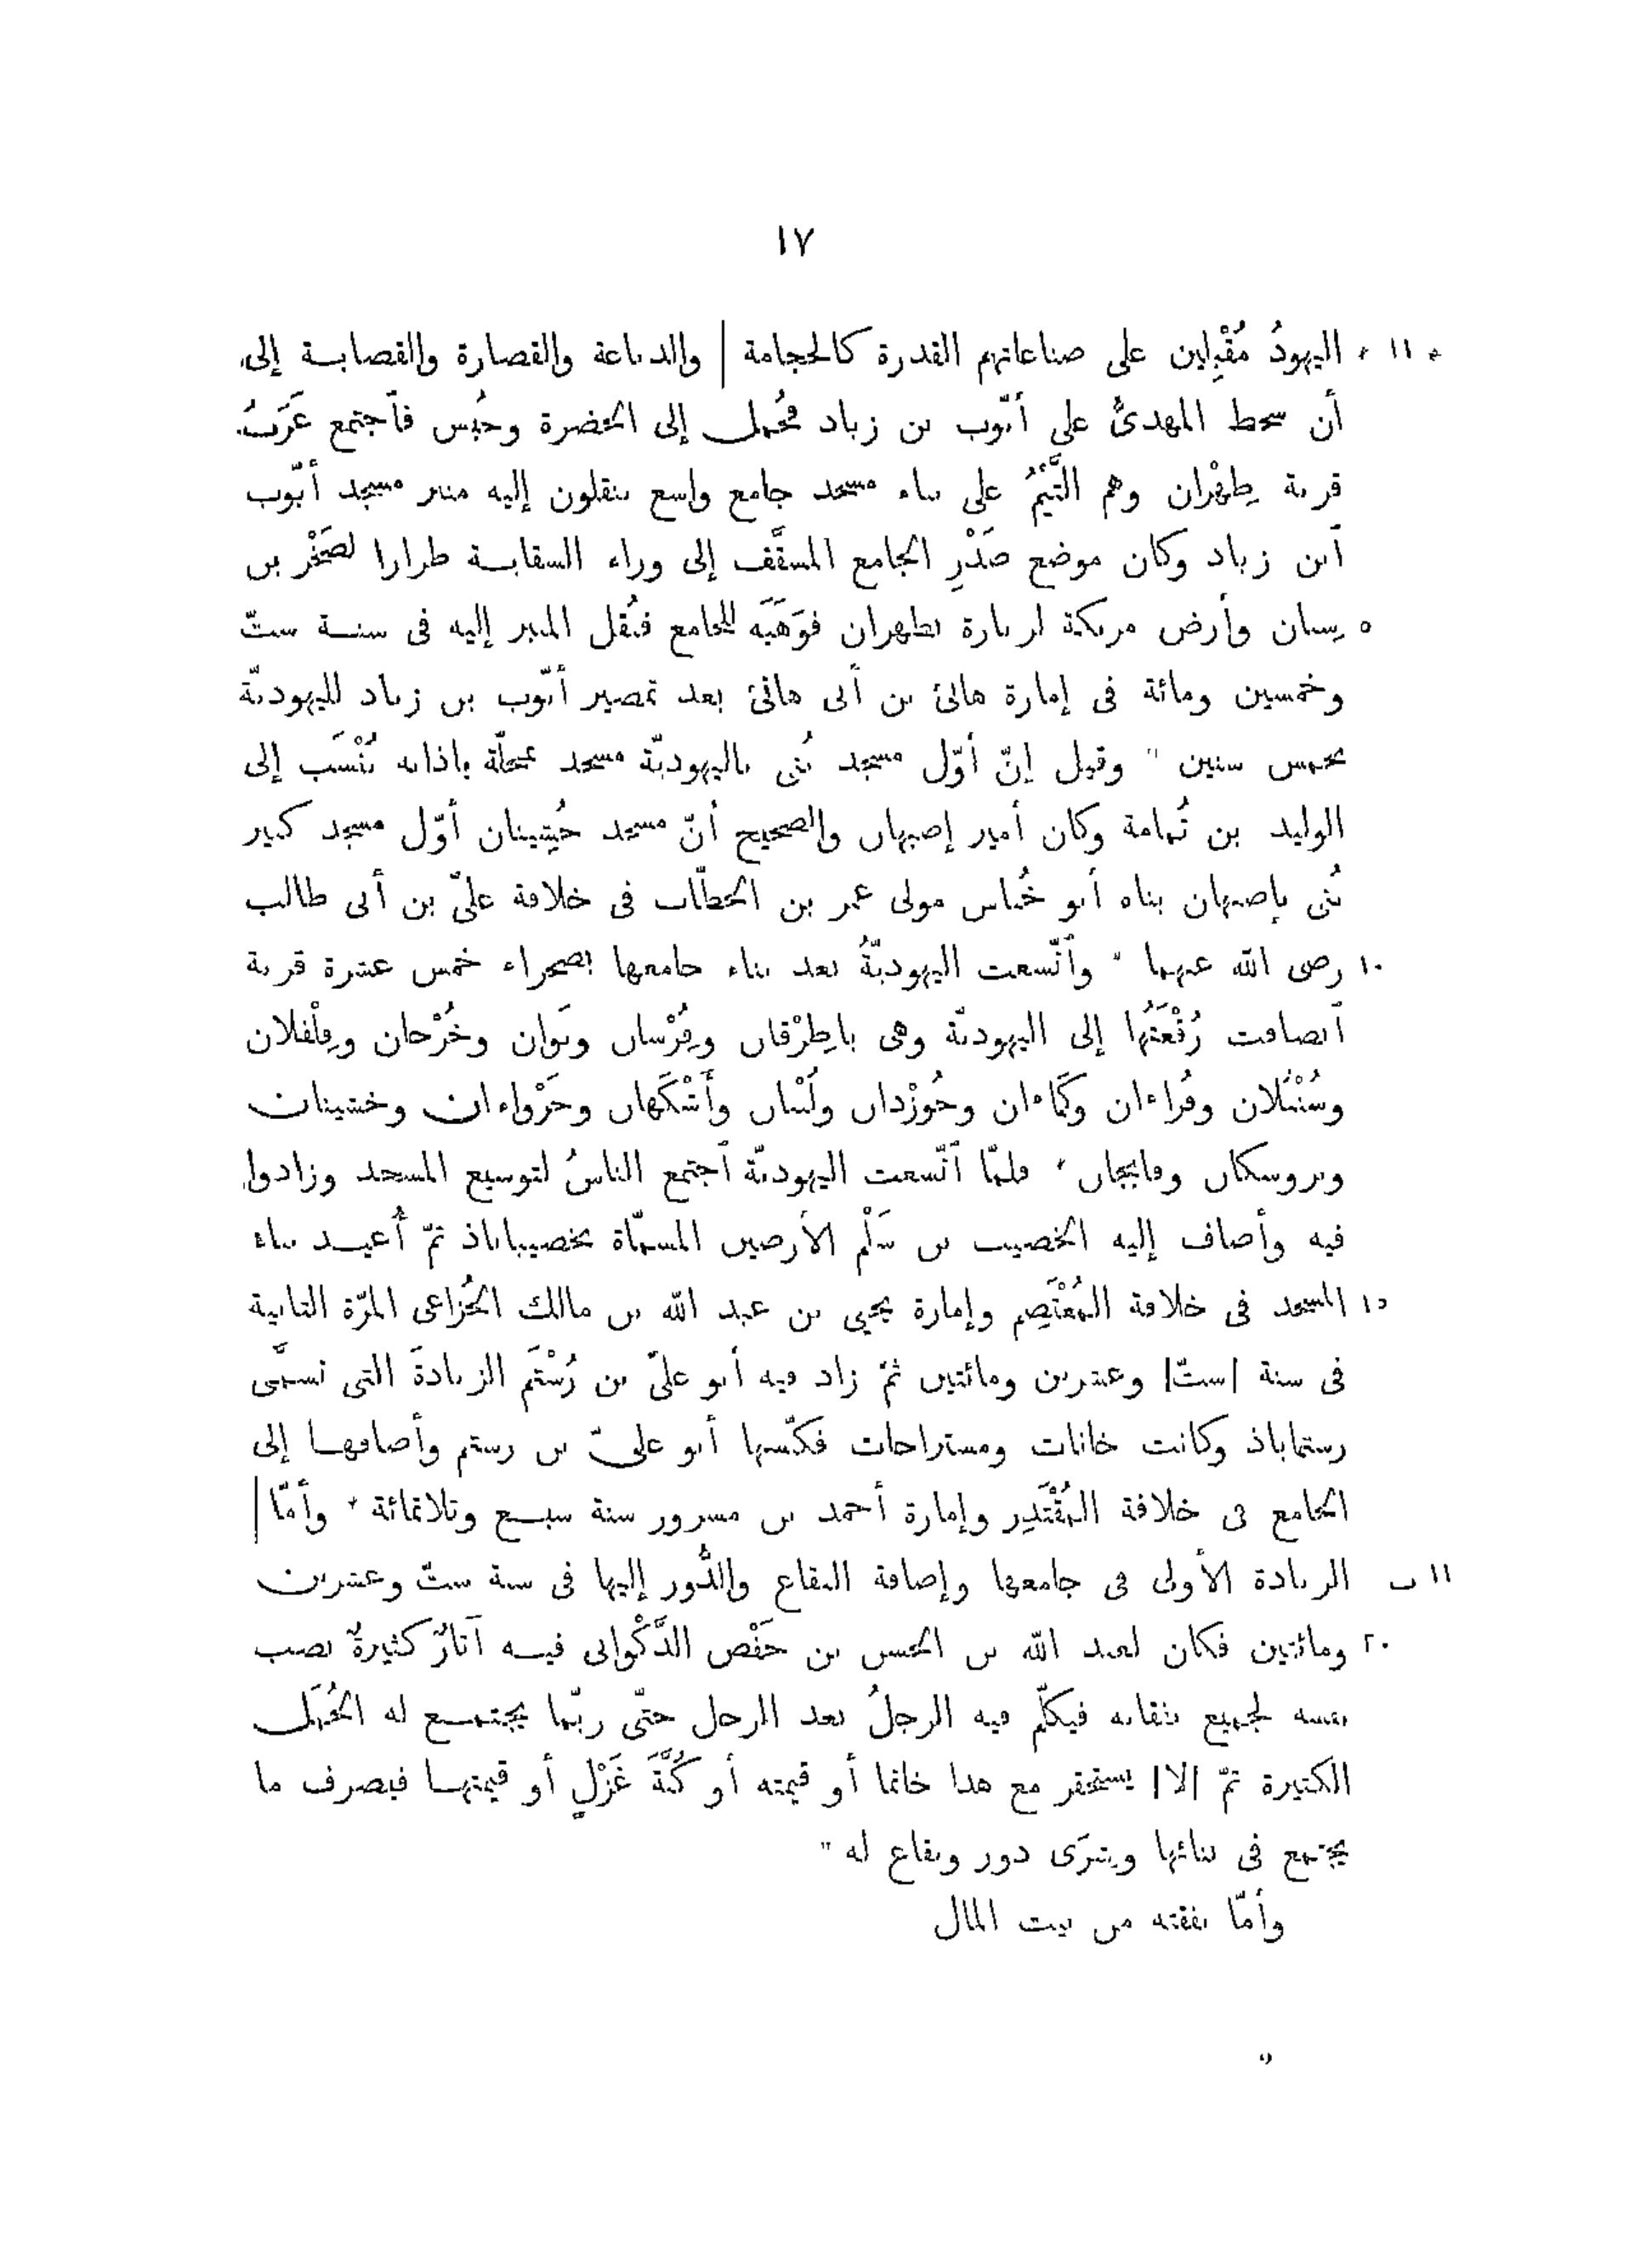 ١٧
* ١١ * اليهودُ مُقْبِلين على صناعاتهم القذرة كالحجامة | والدباغة والقصارة والقصابــة إلى
أن سخط المهدىُّ على أيّوب بن زياد فحُمل إلى الحضرة وحُبس فاَجتمع عَرَبُ
قرية طِهْران وهم التَّيْمُ على بناء مسجد جامع واسع ينقلون إليه منبر مسجد أيّوب
اَبن زياد وكان موضع صَدْرِ الجامع المسقَّف إلى وراء السقايــة طرارا لصَخْر بن
٥ سِنان وأرض مربكة لربارة بطهران فوَهَبَه للجامع فنُقل المنبر إليه فى سنــة ستّ
وخمسين ومائة فى إمارة هانئ بن أبى هانئ بعد تمصير أيّوب بن زياد لليهوديّة
بخمس سنين " وقيل إنّ أوّل مسجد بُنى باليهوديّة مسجد بمحلّة باذانه يُنْسَب إلى
الوليد بن ثُمامة وكان أمير إصبهان والصحيح أنّ مسجد خُشِينان أوّل مسجد كبير
بُنى بإصبهان بناه أبو خُناس مولى عمر بن الخطّاب فى خلافة علىّ بن أبى طالب
١٠ رضى الله عنهما " واَتّسعت اليهوديّةُ بعد بناء جامعها بصحراء خمس عشرة قرية
اَنضافت رُقْعَتُها إلى اليهوديّة وهى باطِرْقان وفِرْسان ويَوان وخُرْجان وفِلْفلان
وسُنْبُلان وفُراءان وكَماءان وجُوزْدان ولُنْبان وأَشْكَهان وجَرْواءان وخشينان
وبروسكان وفابجان * فلمّا اَتّسعت اليهوديّة اَجتمع الناسُ لتوسيع المسجد وزادوا
فيه وأضاف إليه الخصيب بن سَلْم الأرضين المسمّاة بخصيباباذ ثمّ أُعيــد بناء
١٥ المسجد فى خلافة المُعْتَصِم وإمارة يحيى بن عبد الله بن مالك الخُزاعى المرّة الثانية
فى سنة |ستّ| وعشرين ومائتين ثمّ زاد فيه أبو علىّ بن رُسْتَم الزيادةَ التى تسمَّى
رستماباذ وكانت خانات ومستراحات فكبّسها أبو علىّ بن رستم وأضافهــا إلى
الجامع فى خلافة المُقْتَدِر وإمارة أحمد بن مسرور سنة سبــع وثلاثمائة * وأمّا |
١١ ب الزيادة الأولى فى جامعها وإضافة البقاع والدُّور إليها فى سنة ستّ وعشرين
٢٠ ومائتين فكان لعبد الله بن الحسن بن حَفْص الذَّكْوانى فيــه آثارٌ كثيرةٌ نصب
نفسه لجميع نفقاته فيكلّم فيه الرجلُ بعد الرجل حتّى ربّما يجتمــع له الجُمَل
الكثيرة ثمّ |لا| يستحقر مع هذا خاتما أو قيمته أو كُبَّةَ غَزْلٍ أو قيمتهــا فيصرف ما
يجتمع فى بنائها ويشرَى دور وبقاع له "
وأمّا نفقته من بيت المال